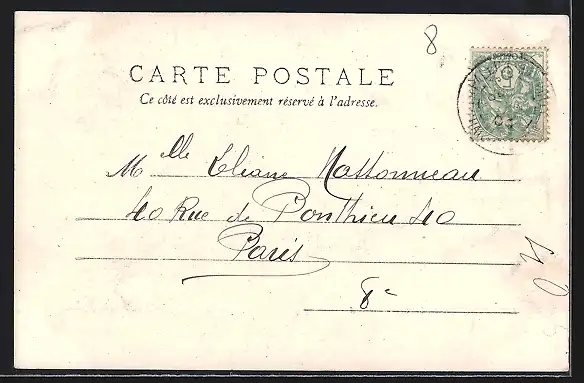 8
CARTE POSTALE
Ce côté est exclusivement réservé à l'adresse.
Mlle Eliane Massonneau
40 Rue de Ponthieu 40
Paris
8e